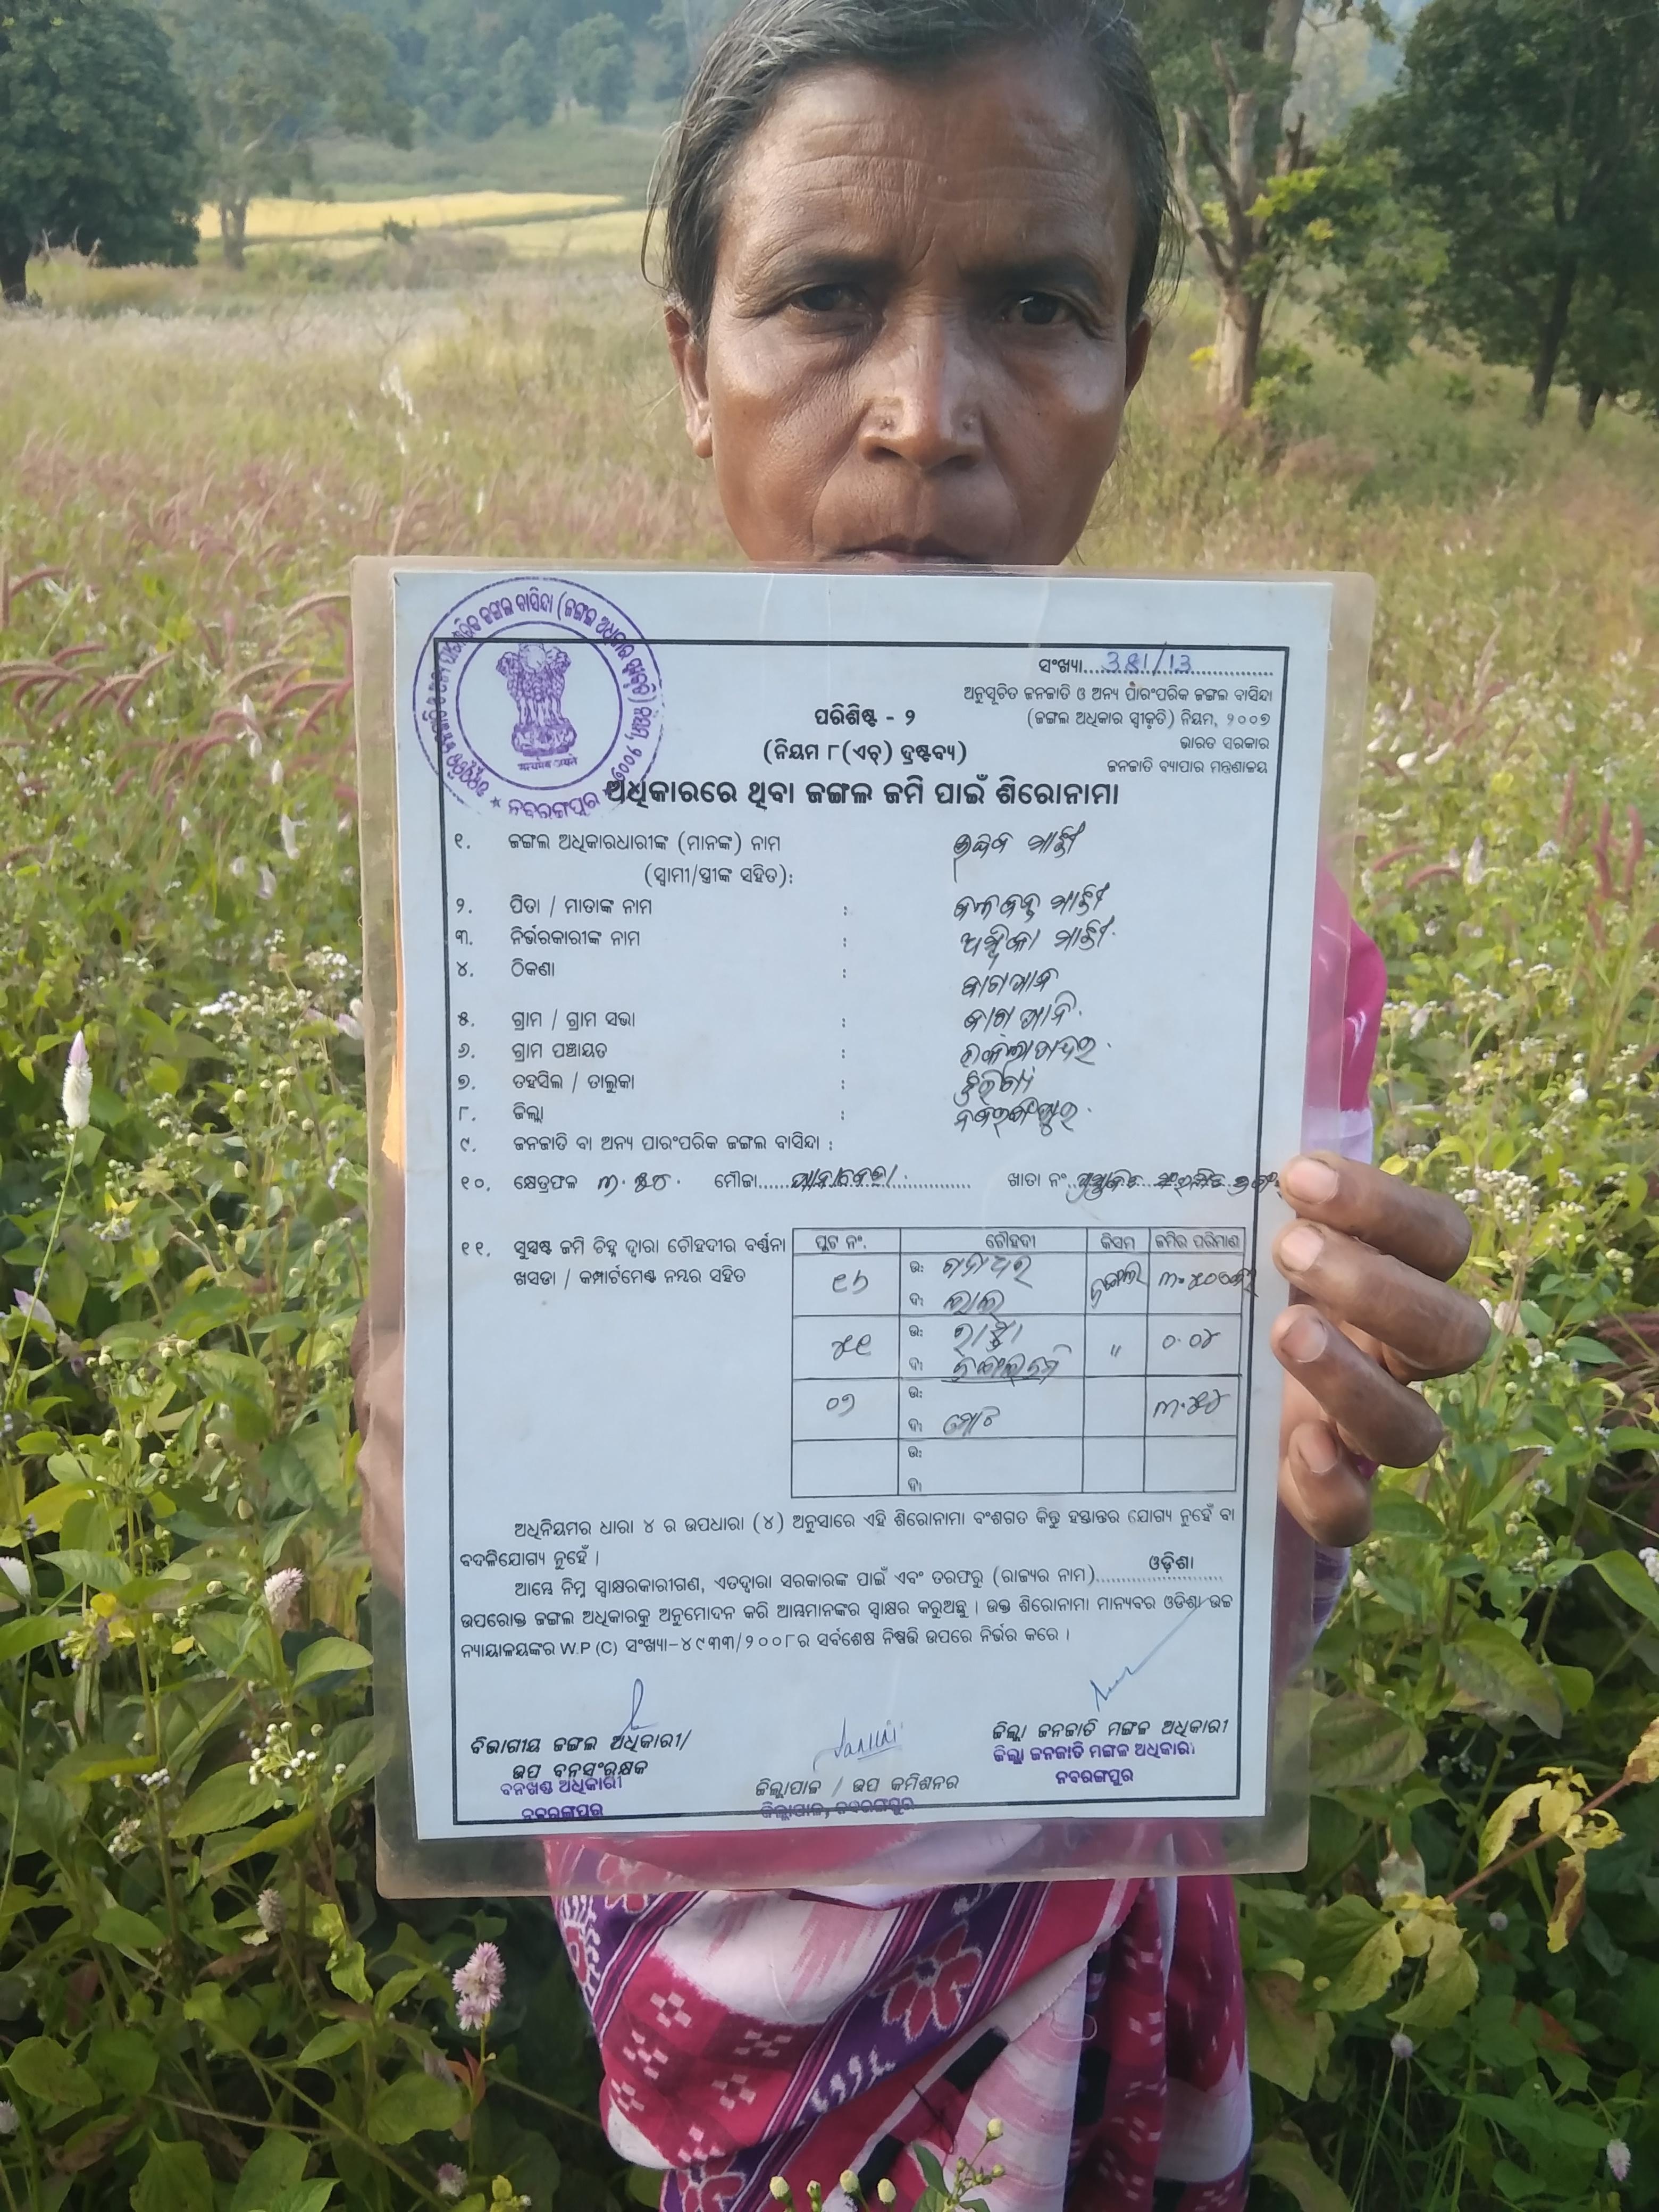 ସଂଖ୍ୟା.....381/13
ଅନୁସୂଚିତ ଜନଜାତି ଓ ଅନ୍ୟ ପାରଂପରିକ ଜଙ୍ଗଲ ବାସିନ୍ଦା
(ଜଙ୍ଗଲ ଅଧିକାର ସ୍ୱୀକୃତି) ନିୟମ, ୨୦୦୭
ଭାରତ ସରକାର
ଜନଜାତି ବ୍ୟାପାର ମନ୍ତ୍ରଣାଳୟ
ପରିଶିଷ୍ଟ - ୨
(ନିୟମ ୮(ଏଚ୍) ଦ୍ରଷ୍ଟବ୍ୟ)
ନବରଙ୍ଗପୁର
ଅଧିକାରରେ ଥିବା ଜଙ୍ଗଲ ଜମି ପାଇଁ ଶିରୋନାମା
୧. ଜଙ୍ଗଲ ଅଧିକାରଧାରୀଙ୍କ (ମାନଙ୍କ) ନାମ ମାଝୀ
(ସ୍ୱାମୀ/ସ୍ତ୍ରୀଙ୍କ ସହିତ):
୨. ପିତା / ମାତାଙ୍କ ନାମ : ମାଝୀ
୩. ନିର୍ଭରକାରୀଙ୍କ ନାମ : ମାଝୀ
୪. ଠିକଣା :
୫. ଗ୍ରାମ / ଗ୍ରାମ ସଭା :
୬. ଗ୍ରାମ ପଞ୍ଚାୟତ :
୭. ତହସିଲ / ତାଲୁକା :
୮. ଜିଲ୍ଲା : ନବରଙ୍ଗପୁର
୯. ଜନଜାତି ବା ଅନ୍ୟ ପାରଂପରିକ ଜଙ୍ଗଲ ବାସିନ୍ଦା :
୧୦. କ୍ଷେତ୍ରଫଳ ୩.୫୪ ମୌଜା..... ଖାତା ନଂ.
୧୧. ସୁସ୍ପଷ୍ଟ ଜମି ଚିହ୍ନ ଦ୍ୱାରା ଚୌହଦୀର ବର୍ଣ୍ଣନା
ଖସଡା / କମ୍ପାର୍ଟମେଣ୍ଟ ନମ୍ବର ସହିତ
ପ୍ଲଟ ନଂ. ଚୌହଦୀ କିସମ ଜମିର ପରିମାଣ
୧୬ ଉ: ଜଙ୍ଗଲ
ଦ:
୫୧ ଉ: ରାସ୍ତା " ୦.୦୪
ଦ: ଜଙ୍ଗଲ ଜମି
୦୨ ଉ: ୩.୫୪
ଦ: ମୋଟ
ଉ:
ଦ:
ଅଧିନିୟମର ଧାରା ୪ ର ଉପଧାରା (୪) ଅନୁସାରେ ଏହି ଶିରୋନାମା ବଂଶଗତ କିନ୍ତୁ ହସ୍ତାନ୍ତର ଯୋଗ୍ୟ ନୁହେଁ ବା
ବଦଳିଯୋଗ୍ୟ ନୁହେଁ ।
ଆମ୍ଭେ ନିମ୍ନ ସ୍ୱାକ୍ଷରକାରୀଗଣ, ଏତଦ୍ୱାରା ସରକାରଙ୍କ ପାଇଁ ଏବଂ ତରଫରୁ (ରାଜ୍ୟର ନାମ).....ଓଡ଼ିଶା.....
ଉପରୋକ୍ତ ଜଙ୍ଗଲ ଅଧିକାରକୁ ଅନୁମୋଦନ କରି ଆମ୍ଭମାନଙ୍କର ସ୍ୱାକ୍ଷର କରୁଅଛୁ । ଉକ୍ତ ଶିରୋନାମା ମାନ୍ୟବର ଓଡିଶା ଉଚ୍ଚ
ନ୍ୟାୟାଳୟଙ୍କର W.P (C) ସଂଖ୍ୟା-୪୯୩୩/୨୦୦୮ର ସର୍ବଶେଷ ନିଷ୍ପତ୍ତି ଉପରେ ନିର୍ଭର କରେ ।
ବିଭାଗୀୟ ଜଙ୍ଗଲ ଅଧିକାରୀ/
ଉପ ବନସଂରକ୍ଷକ
ବନଖଣ୍ଡ ଅଧିକାରୀ
ନବରଙ୍ଗପୁର
ଜିଲ୍ଲାପାଳ / ଉପ କମିଶନର
ଜିଲ୍ଲାପାଳ, ନବରଙ୍ଗପୁର
ଜିଲ୍ଲା ଜନଜାତି ମଙ୍ଗଳ ଅଧିକାରୀ
ଜିଲ୍ଲା ଜନଜାତି ମଙ୍ଗଳ ଅଧିକାରୀ
ନବରଙ୍ଗପୁର